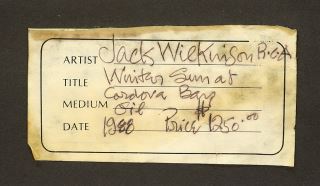 ARTIST Jack Wilkinson
TITLE Winter Sun at
Cordova Bay
MEDIUM Oil $
DATE 1988 Price 1250.00